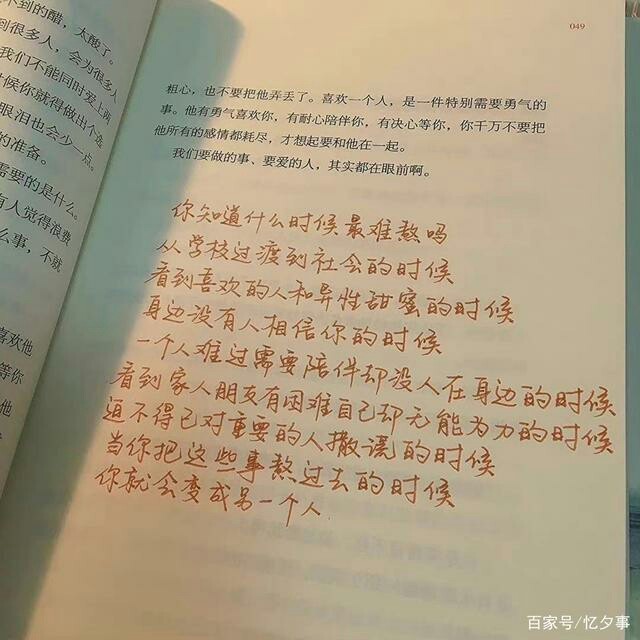 不到的醋，太酸了。
到很多人，会为很多
我们不能同时爱上两
时候你就得做出个选
眼泪也会少一点。
的准备。
需要的是什么。
有人觉得浪费
么事，不就
喜欢他
等你
他
049
粗心，也不要把他弄丢了。喜欢一个人，是一件特别需要勇气的
事。他有勇气喜欢你，有耐心陪伴你，有决心等你，你千万不要把
他所有的感情都耗尽，才想起要和他在一起。
我们要做的事、要爱的人，其实都在眼前啊。
你知道什么时候最难熬吗
从学校过渡到社会的时候
看到喜欢的人和异性甜蜜的时候
身边没有人相信你的时候
一个人难过需要陪伴却没人在身边的时候
看到家人朋友有困难自己却无能为力的时候
迫不得已对重要的人撒谎的时候
当你把这些事熬过去的时候
你就会变成另一个人
百家号/忆夕事